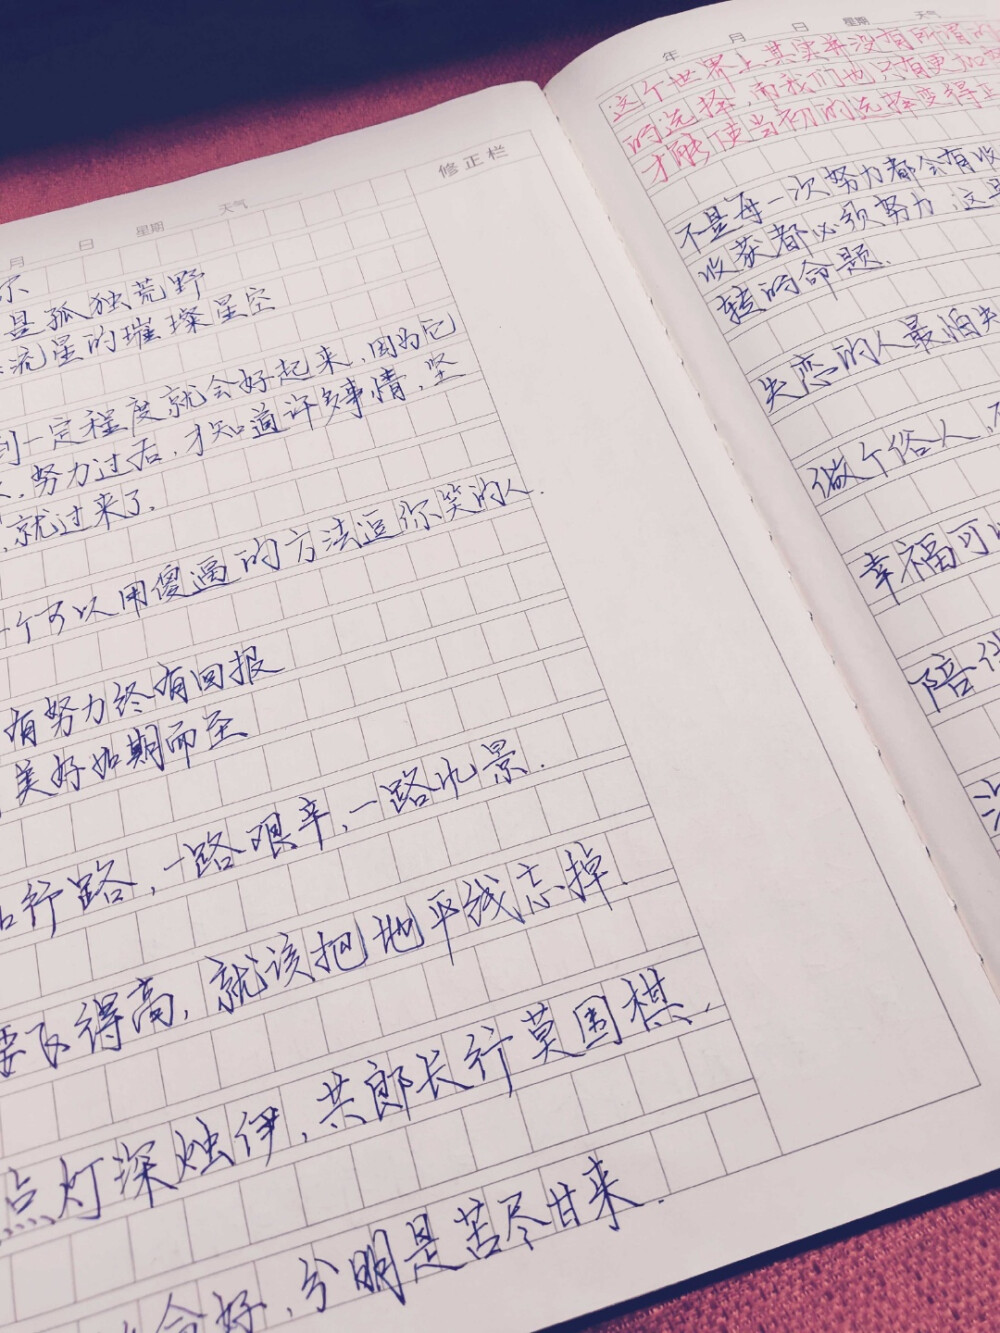 修正栏
月 日 星期 天气
是孤独荒野
流星的璀璨星空
到一定程度就会好起来,因为它
努力过后,才知道许多事情,坚
,就过来了.
个可以用傻逼的方法逗你笑的人.
有努力终有回报
美好如期而至
行路,一路艰辛,一路风景.
要飞得高,就该把地平线忘掉.
点灯深烛伊,共郎长行莫围棋.
好,分明是苦尽甘来.
年 月 日 星期 天气
这个世界上其实并没有所谓的
的选择,而我们也只有更加
才能使当初的选择变得正
不是每一次努力都会有收
收获都必须努力,这是
转的命题.
失恋的人最怕失
做个俗人,
幸福可以
陪伴